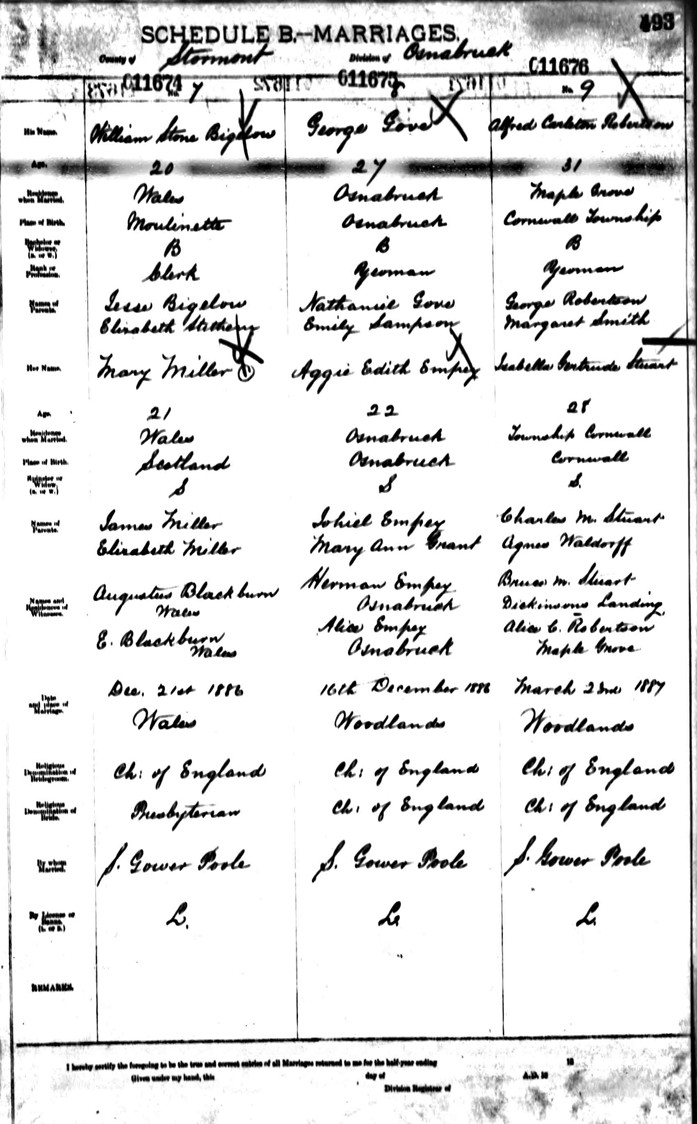 493
SCHEDULE B.—MARRIAGES.
County of Stormont Division of Osnabruck
011674 011675 011676
No. 7 8 No. 9
His Name. William Stone Bigelow George Gove Alfred Carleton Robertson
Age. 20 27 31
Residence when Married. Wales Osnabruck Maple Grove
Place of Birth. Moulinette Osnabruck Cornwall Township
Bachelor or Widower. (B. or W.) B B B
Rank or Profession. Clerk Yeoman Yeoman
Names of Parents. Jesse Bigelow Nathaniel Gove George Robertson
Elizabeth Emily Sampson Margaret Smith
Her Name. Mary Miller Aggie Edith Empey Isabella Gertrude Stuart
Age. 21 22 28
Residence when Married. Wales Osnabruck Township Cornwall
Place of Birth. Scotland Osnabruck Cornwall
Spinster or Widow. (S. or W.) S S S.
Names of Parents. James Miller Johiel Empey Charles M. Stuart
Elizabeth Miller Mary Ann Grant Agnes Waldorff
Names and Residences of Witnesses. Augustus Blackburn Herman Empey Bruce M. Stuart
Wales Osnabruck Dickinsons Landing
E. Blackburn Alice Empey Alice C. Robertson
Wales Osnabruck Maple Grove
Date and place of Marriage. Dec. 21st 1886 16th December 1886 March 23rd 1887
Wales Woodlands Woodlands
Religious Denomination of Bridegroom. Ch: of England Ch: of England Ch: of England
Religious Denomination of Bride. Presbyterian Ch: of England Ch: of England
By whom Married. S. Gower Poole S. Gower Poole S. Gower Poole
By License or Banns. (L. or B.) L. L. L.
REMARKS.
I hereby certify the foregoing to be the true and correct entries of all Marriages returned to me for the half-year ending 18
Given under my hand, this day of A.D. 18
Division Registrar of